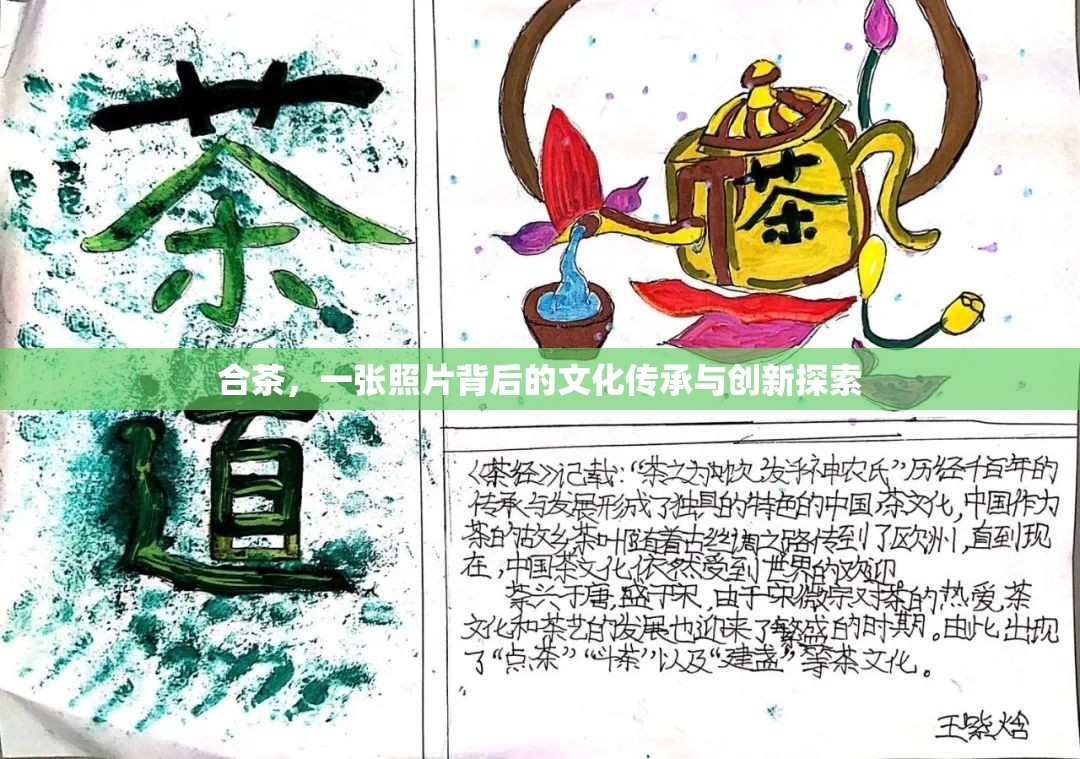 茶
道
茶
合茶，一张照片背后的文化传承与创新探索
《茶经》记载：“茶之为饮，发乎神农氏”历经千百年的
传承与发展形成了独具的特色的中国茶文化，中国作为
茶的故乡，茶叶随着古丝绸之路传到了欧洲，直到现
在，中国茶文化依然受到世界的欢迎
茶兴于唐，盛于宋，由于宋徽宗对茶的热爱，茶
文化和茶艺的发展也迎来了繁盛的时期。由此出现
了“点茶”“斗茶”以及“建盏”等茶文化。
王紫焓